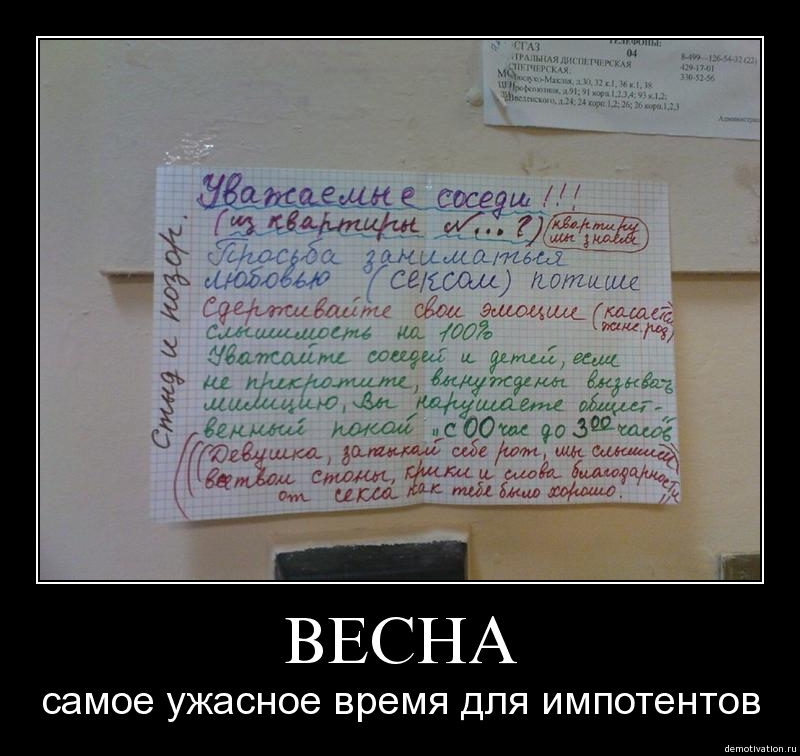 ОСГАЗ
ТЕЛЕФОНЫ:
04
ТРАЛЬНАЯ ДИСПЕТЧЕРСКАЯ
8-499-126-54-32 (22)
429-17-01
330-52-56
Миклухо-Маклая, д.30, 32 к.1, 36 к.1, 38
Профсоюзная, д.91; 91 корп.1,2,3,4; 93 к.1,2;
Введенского, д.24; 24 корп.1,2; 26; 26 корп.1,2,3
Стыд и позор.
Уважаемые соседи!!!
(из квартиры №...?) (квартиру мы знаем)
Просьба заниматься
любовью (сексом) потише
Сдерживайте свои эмоции (касается женс. род)
слышимость на 100%
Уважайте соседей и детей, если
не прекратите, вынуждены вызывать
милицию, Вы нарушаете общест-
венный покой "с 00 час до 3 00 часов"
(((Девушка, затыкай себе рот, мы слышим
все твои стоны, крики и слова благодарности
от секса как тебе было хорошо.))
ВЕСНА
самое ужасное время для импотентов
demotivation.ru